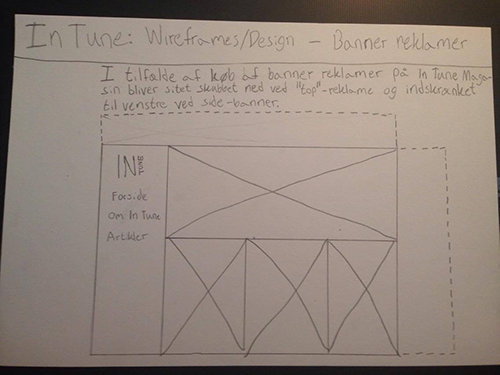 In Tune: Wireframes/Design – Banner reklamer
I tilfælde af køb af banner reklamer på In Tune Maga-
sin bliver sitet skubbet ned ved "top"-reklame og indskrænket
til venstre ved side-banner.
IN TUNE
Forside
om In Tune
Artikler